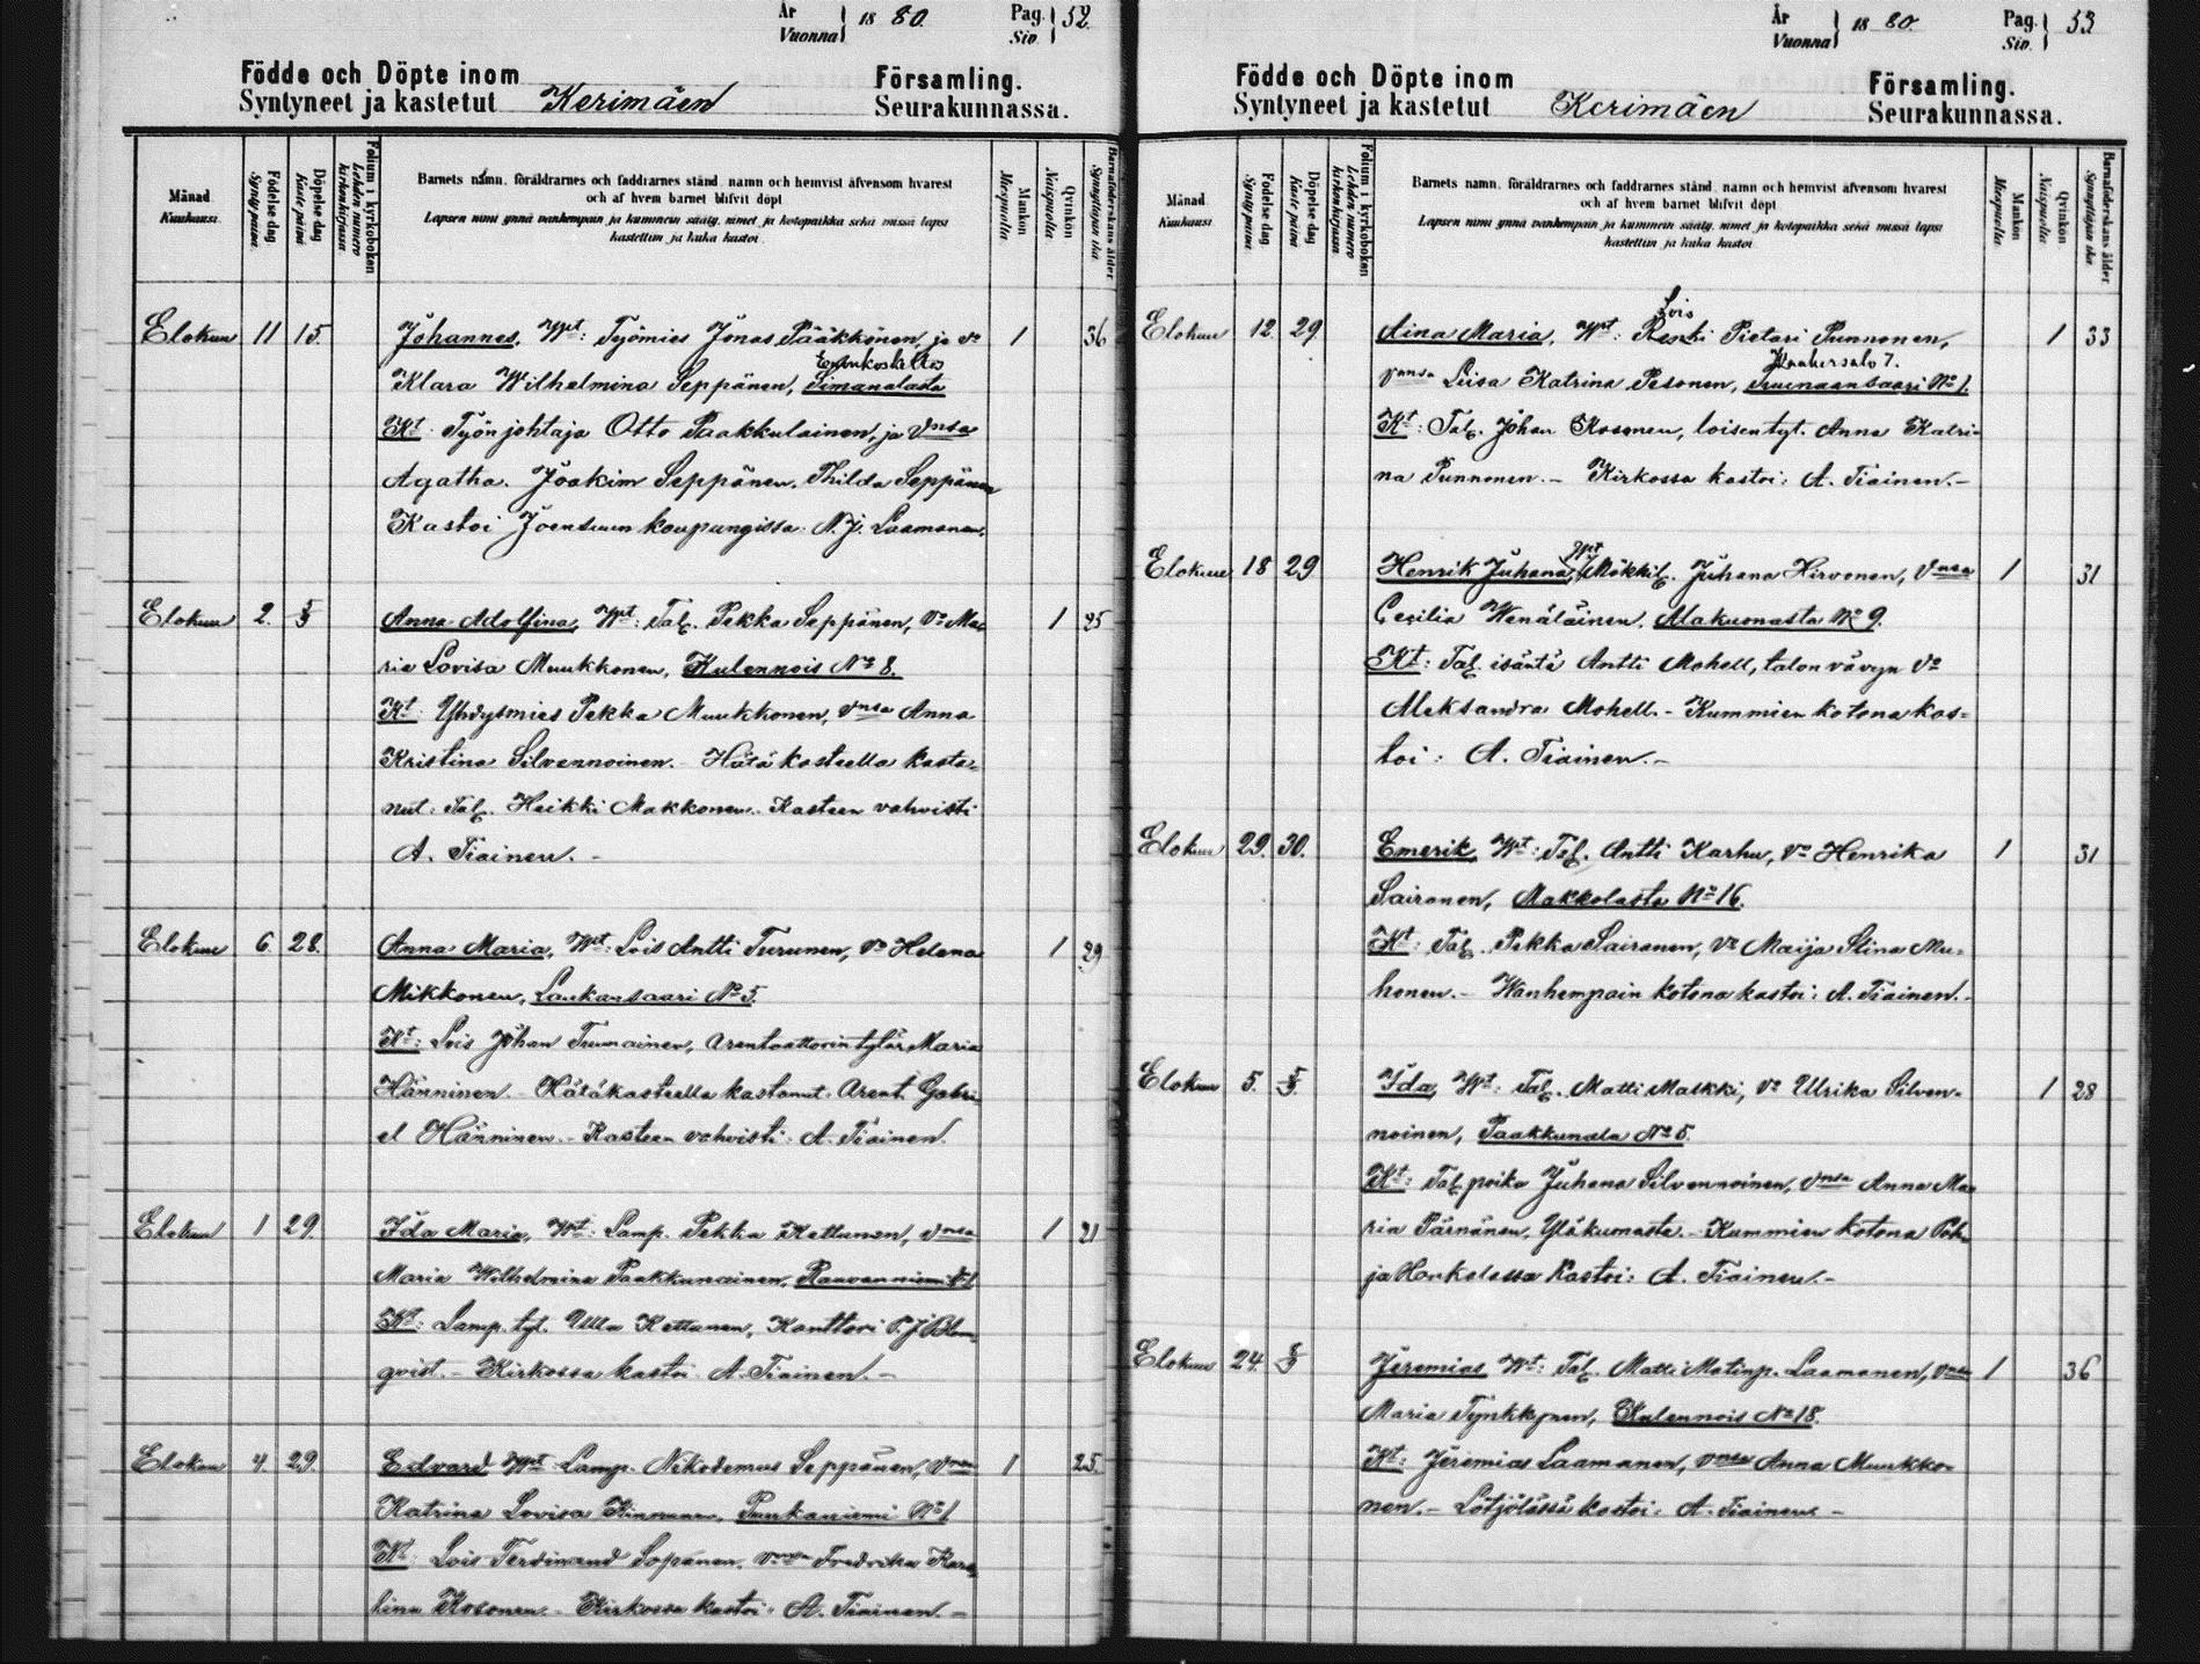 År
Vuonna
1880.
Pag.
Siv.
52.
Födde och Döpte inom
Syntyneet ja kastetut
Kerimäen
Församling.
Seurakunnassa.
Månad
Kuukausi
Födelse dag
Synty päivä
Döpelse dag
Kaste päivä
Folium i kyrkoboken
Lehden numero
kirkonkirjassa
Barnets namn, föräldrarnes och faddrarnes stånd, namn och hemvist äfvensom hvarest
och af hvem barnet blifvit döpt
Lapsen nimi ynnä vanhempain ja kummein sääty, nimet ja kotopaikka sekä missä lapsi
kastettiin ja kuka kastoi
Mankön
Miespuolta
Qvinkön
Naispuolta
Barnaföderskans ålder
Synnyttäjän ikä
Elokuu 11 15. Johannes, Wht: Työmies Jonas Pääkkönen, ja Vo 1 36
Klara Wilhelmina Seppänen, Simanalasta
Kt. Työnjohtaja Otto Paakkulainen, ja Vnsa
Agatha. Joakim Seppänen, Thilda Seppänen
Kastoi Joensuun kaupungissa N. J. Laamanen.
Elokuu 2. 5/9 Anna Adolfina, Wht: Tal. Pekka Seppänen, Vo Ma= 1 35
ria Lovisa Muukkonen, Kulennois No 8.
Kt. Yhdysmies Pekka Muukkonen, Vnsa Anna
Kristina Silvennoinen. - Hätäkasteella kasta=
nut: Tal. Heikki Makkonen. Kasteen vahvisti
A. Tiainen. -
Elokuu 6. 28. Anna Maria, Wht: Lois Antti Turunen, Vo Helena 1 29
Mikkonen, Laukansaari No 5.
Kt: Lois Johan Tuunainen, Arentaattorin tytär Maria
Hänninen. - Hätäkasteella kastanut: Arent. Gabri=
el Hänninen. - Kasteen vahvisti: A. Tiainen.
Elokuu 1 29. Ida Maria, Wht: Lamp. Pekka Kettunen, Vnsa 1 21
Maria Wilhelmina Paakkunainen, Rauvanniemi No 1
Kt: Lamp. tyt. Ulla Kettunen, Kanttori P. J. Blom=
qvist. - Kirkossa kastoi A. Tiainen. -
Elokuu 4. 29. Edvard Wht: Lamp. Nikodemus Seppänen, Vnsa 1 25.
Katrina Lovisa Kinnunen, Puukanniemi No 1
Kt: Lois Ferdinand Sopanen, Vnsa Fredrika Karo=
lina Kosonen. - Kirkossa kastoi: A. Tiainen. -
År
Vuonna
1880.
Pag.
Siv.
53
Födde och Döpte inom
Syntyneet ja kastetut
Kerimäen
Församling.
Seurakunnassa.
Månad
Kuukausi
Födelse dag
Synty päivä
Döpelse dag
Kaste päivä
Folium i kyrkoboken
Lehden numero
kirkonkirjassa
Barnets namn, föräldrarnes och faddrarnes stånd, namn och hemvist äfvensom hvarest
och af hvem barnet blifvit döpt
Lapsen nimi ynnä vanhempain ja kummein sääty, nimet ja kotopaikka sekä missä lapsi
kastettiin ja kuka kastoi
Mankön
Miespuolta
Qvinkön
Naispuolta
Barnaföderskans ålder
Synnyttäjän ikä
Lois
Elokuu 12. 29. Aina Maria, Wht: Renki Pietari Punnonen, 1 33
Vnsa Leisa Katrina Pesonen, No 1.
Kt: Tal. Johan Kosonen, loisen tyt. Anna Katri=
na Punnonen. - Kirkossa kastoi: A. Tiainen. -
Elokuu 18 29 Henrik Juhana, Wht Mökkil. Juhana Hirvonen, Vnsa 1 31
Cecilia Wenäläinen, Alakuonasta No 9.
Kt: Tal. isäntä Antti Mohell, talon vävyn Vo
Aleksandra Mohell. - Kummien kotona kas=
toi: A. Tiainen. -
Elokuu 29. 30. Emerik, Wht: Tal. Antti Karhu, Vo Henrika 1 31
Sairanen, Makkolasta No 16.
Kt: Tal. Pekka Sairanen, Vo Maija Stina Mu=
honen. - Wanhempain kotona kastoi: A. Tiainen. -
Elokuu 5. 5/9. Ida, Wht: Tal. Matti Malkki, Vo Ulrika Silven= 1 28
noinen, Paakkunala No 5.
Kt: Tal. poika Juhana Silvennoinen, Vnsa Anna Ma=
ria Pärnänen, Yläkuonasta. - Kummien kotona Poh=
ja Honkalassa kastoi: A. Tiainen. -
Elokuu 24. 5/9 Jeremias Wht: Tal. Matti Matinp. Laamanen, Vnsa 1 36
Maria Tynkkynen, Kulennois No 18.
Kt: Jeremias Laamanen, Vnsa Anna Muukko=
nen. - Lötjölässä kastoi: A. Tiainen -